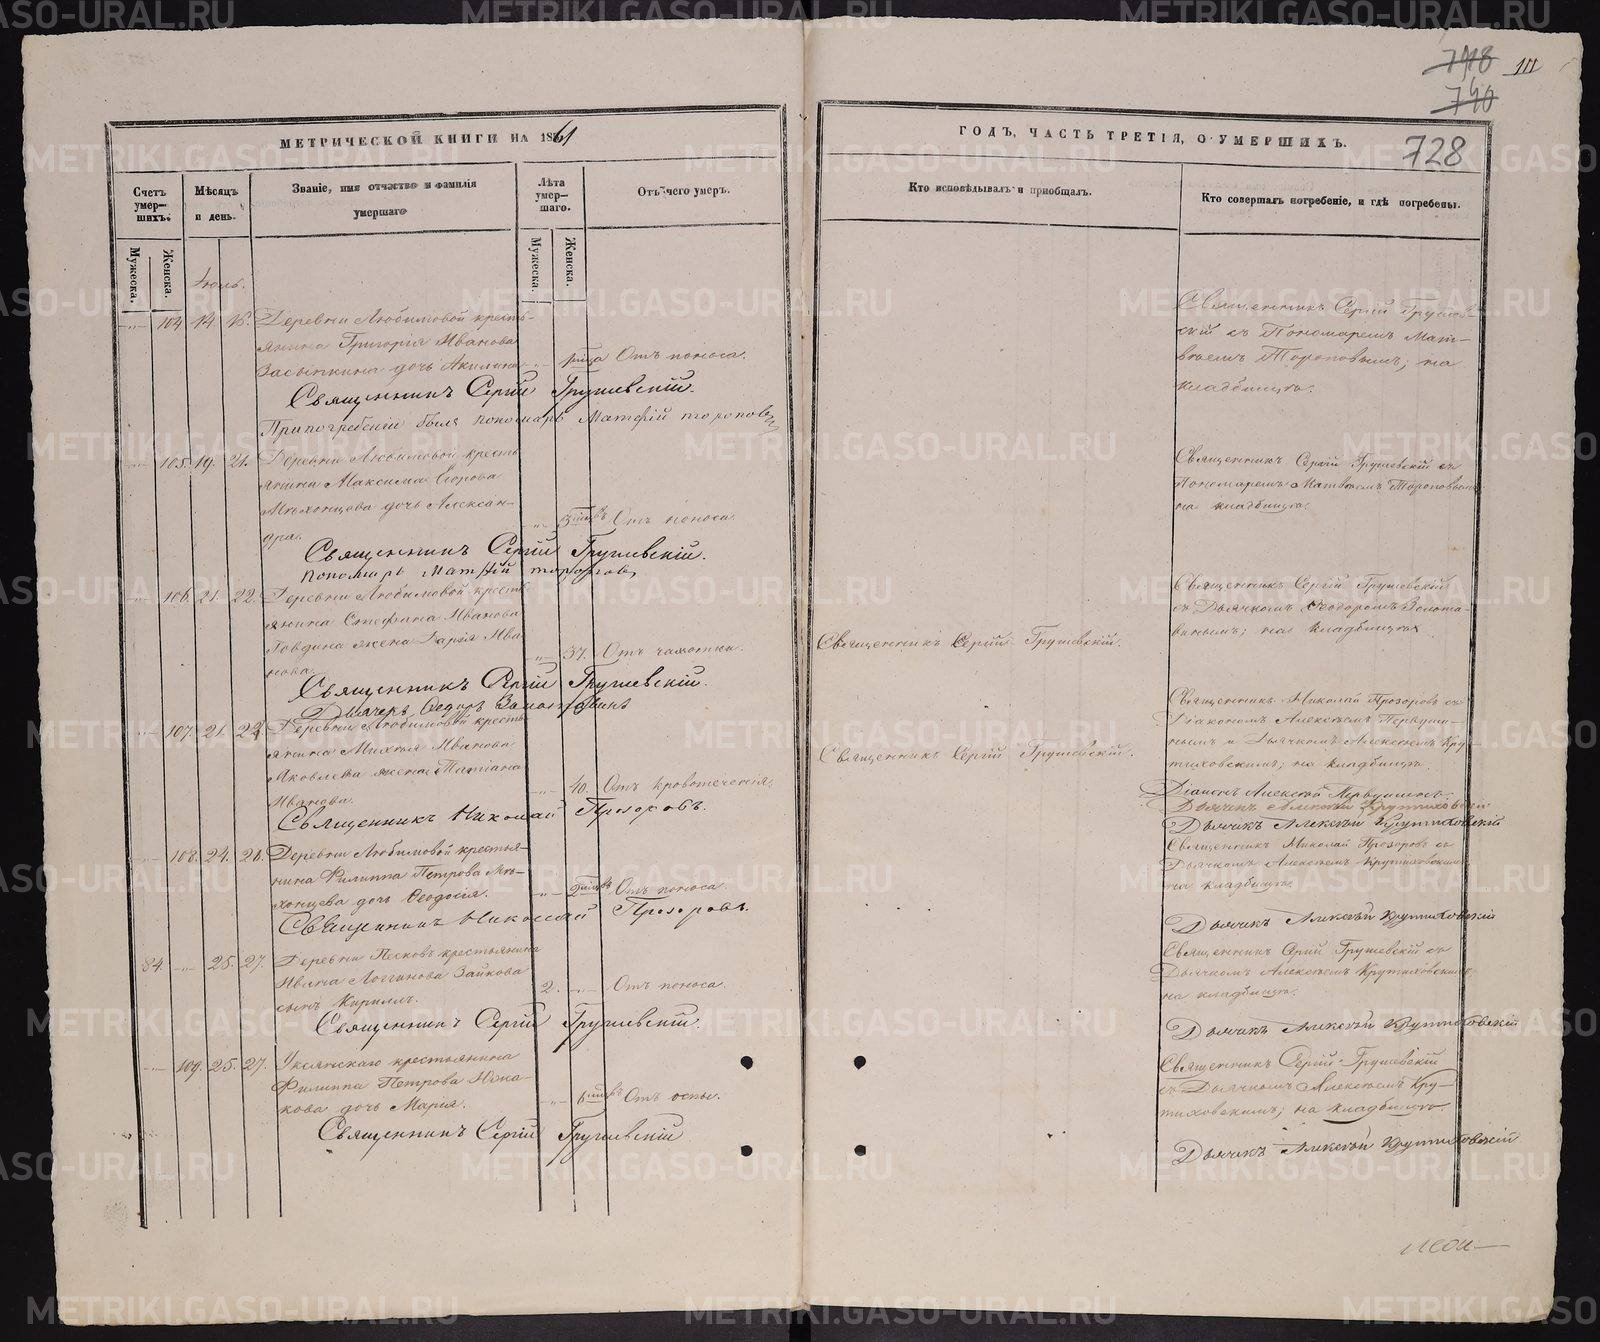 METRIKI.GASO-URAL.RU
718
740
111
728
МЕТРИЧЕСКОЙ КНИГИ НА 1861
Счетъ умер-шихъ.
Мѣсяцъ и день.
Званіе, имя отчество и фамилія умершаго
Лѣта умер-шаго.
Отъ чего умеръ.
Мужеска.
Женска.
Мужеска.
Женска.
Іюль.
104 14. 15. Деревни Любимовой кресть-
янина Григорія Иванова
Засыпкина дочь Акилина Отъ поноса.
Священникъ Сергій Грушевскій.
При погребеніи былъ пономарь Матфій Тороповъ
105. 19. 21. Деревни Любимовой кресть-
янина Максима
дочь Алексан-
дра. Отъ поноса.
Священникъ Сергій Грушевскій.
Пономарь Матфій Тороповъ
106. 21. 22. Деревни Любимовой кресть-
янина Стефана Иванова
жена Дарія Ива-
нова. 37. Отъ чахотки.
Священникъ Сергій Грушевскій.
Дьячекъ Ѳедоръ
107. 21. 22. Деревни Любимовой кресть-
янина Иванова
Яковлева жена Татіана
Иванова. 40. Отъ кровотеченія.
Священникъ Николай Прозоровъ.
108. 24. Деревни Любимовой крестья-
нина Филиппа Петрова Мѣ-
хонцева дочь Ѳеодосія. Отъ поноса.
Священникъ Николай Прозоровъ.
84. 25. 27. Деревни Песковъ крестьянина
Ивана Логгинова Зайкова
сынъ Кириллъ. 2. Отъ поноса.
Священникъ Сергій Грушевскій.
109. 25. 27. Уксянскаго крестьянина
Филиппа Петрова
дочь Марія. Отъ оспы.
Священникъ Сергій Грушевскій
ГОДЪ, ЧАСТЬ ТРЕТІЯ, О УМЕРШИХЪ.
Кто исповѣдывалъ и пріобщалъ.
Кто совершалъ погребеніе, и гдѣ погребены.
Священникъ Сергій Грушев-
скій съ Пономаремъ Мат-
вѣемъ Тороповымъ; на
кладбищѣ.
Священникъ Сергій Грушевскій съ
Пономаремъ Матвѣемъ Тороповымъ
на кладбищѣ.
Священникъ Сергій Грушевскій.
Священникъ Сергій Грушевскій
съ Дьячкомъ Ѳеодоромъ Золота-
винымъ; на кладбищѣ
Священникъ Сергій Грушевскій.
Священникъ Николай Прозоровъ съ
Діакономъ Алексѣемъ Первуши-
нымъ и Дьячкомъ Алексѣемъ Кру-
тиховскимъ; на кладбищѣ.
Діаконъ Алексѣй Первушинъ.
Дьячекъ Алексѣй Крутиховскій
Дьячекъ Алексѣй Крутиховскій
Священникъ Николай Прозоровъ съ
Дьячкомъ Алексѣемъ Крутиховскимъ
на кладбищѣ.
Дьячекъ Алексѣй Крутиховскій
Священникъ Сергій Грушевскій съ
Дьячкомъ Алексѣемъ Крутиховскимъ
на кладбищѣ.
Дьячекъ Алексѣй Крутиховскій
Священникъ Сергій Грушевскій
съ Дьячкомъ Алексѣемъ Кру-
тиховскимъ; на кладбищѣ.
Дьячекъ Алексѣй Крутиховскій